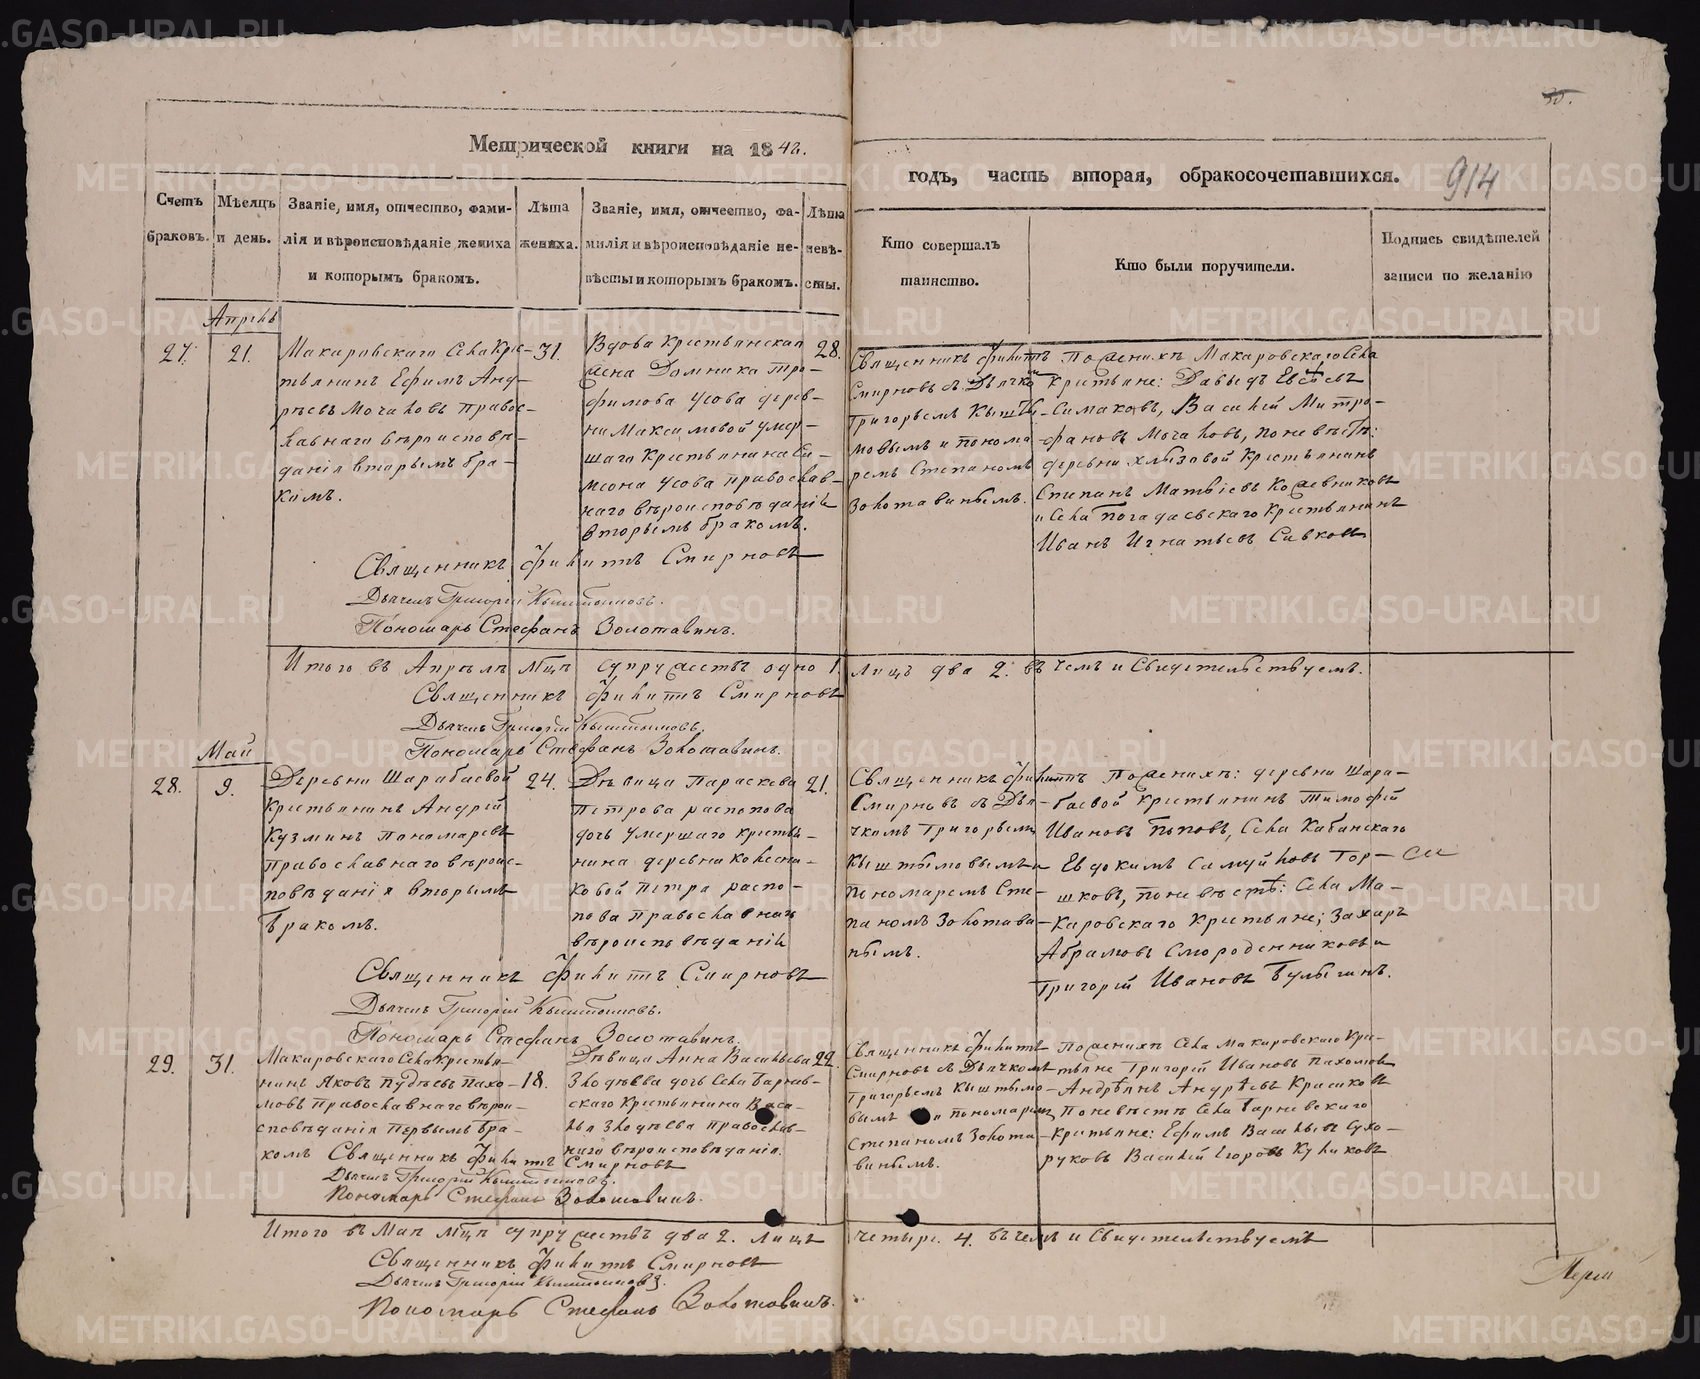 30.
Метрической книги на 1842.
годъ, часть вторая, обракосочетавшихся.
914
Счетъ
браковъ.
Мѣсяцъ
и день.
Званіе, имя, отчество, фами-
лія и вѣроисповѣданіе жениха
и которымъ бракомъ.
Лѣта
жениха.
Званіе, имя, отчество, фа-
милія и вѣроисповѣданіе не-
вѣсты и которымъ бракомъ.
Лѣта
невѣ-
сты.
Кто совершалъ
таинство.
Кто были поручители.
Подпись свидѣтелей
записи по желанію
Апрѣль
27.
21.
Макаровскаго Села Кре-
стьянинъ Ефимъ Анд-
рѣевъ Мочаловъ Правос-
лавнаго вѣроисповѣ-
данія вторымъ бра-
комъ.
31.
Вдова Крестьянская
жена Домника Тро-
фимова Усова дерев-
ни Максимовой умер-
шаго Крестьянина Си-
меона Усова православ-
наго вѣроисповѣданія
вторымъ бракомъ.
28.
Священникъ Филиппъ
Смирновъ съ Дьячкомъ
Григорьемъ Кышты-
мовымъ и понома-
ремъ Степаномъ
Золотавинымъ.
По женихѣ Макаровскаго Села
Крестьяне: Давыдъ Евсѣевъ
Симаковъ, Василей Митро-
фановъ Мочаловъ, по невѣстѣ:
деревни Хлызовой Крестьянинъ
Степанъ Матвѣевъ Кожевниковъ
и Села Погадаевскаго Крестьянинъ
Иванъ Игнатьевъ Савковъ
Священникъ Филиппъ Смирновъ
Дьячекъ Григорій Кыштымовъ.
Пономарь Стефанъ Золотавинъ.
Итого въ Апрѣлѣ мцѣ супружествъ одно 1. лицъ два 2. въ чемъ и Свидетельствуемъ.
Священникъ Филиппъ Смирновъ
Дьячекъ Григорій Кыштымовъ.
Пономарь Стефанъ Золотавинъ.
Май
28.
9.
Деревни Шарабаевой
Крестьянинъ Андрей
Кузминъ Пономаревъ
Православнаго вѣроис-
повѣданія вторымъ
бракомъ.
24.
Дѣвица Параскева
Петрова Распопова
дочь умершаго крестья-
нина деревни Колесни-
ковой Петра Распо-
пова Православнаго
вѣроисповѣданія
21.
Священникъ Филиппъ
Смирновъ съ Дья-
чкомъ Григорьемъ
Кыштымовымъ и
пономаремъ Сте-
паномъ Золотави-
нымъ.
По женихѣ: деревни Шара-
баевой Крестьянинъ Тимофей
Ивановъ Поповъ, Села Кабанскаго
Евдокимъ Самуйловъ Гор-
шковъ, по невѣстѣ: Села Ма-
каровскаго Крестьяне; Захаръ
Абрамовъ Смородениковъ и
Григорій Ивановъ Булыгинъ.
Священникъ Филиппъ Смирновъ
Дьячекъ Григорій Кыштымовъ.
Пономарь Стефанъ Золотавинъ.
29.
31.
Макаровскаго Села Крестья-
нинъ Яковъ Пудѣевъ Пахо-
мовъ Православнаго вѣрои-
споведанія Первымъ бра-
комъ
18.
Дѣвица Анна Васильева
Злодѣева дочь Села Барнев-
скаго Крестьянина Васи-
лья Злодѣева Православ-
наго вѣроисповѣданія.
22.
Священникъ Филиппъ
Смирновъ съ Дьячкомъ
Григорьемъ Кыштымо-
вымъ и пономаремъ
Степаномъ Золота-
винымъ.
По женихѣ Села Макаровскаго Кре-
стьяне Григорій Ивановъ Пахомовъ
Андрѣянъ Андрѣевъ Красиковъ
По невѣстѣ Села Барневскаго
Крестьяне: Ефимъ Васильевъ Сухо-
руковъ Василей Егоровъ Куликовъ
Священникъ Филиппъ Смирновъ
Дьячекъ Григорій Кыштымовъ.
Пономарь Стефанъ Золотавинъ.
Итого въ Маѣ мцѣ супружествъ два 2. лицъ четыре. 4. въ чемъ и Свидетельствуемъ
Священникъ Филиппъ Смирновъ
Дьячекъ Григорій Кыштымовъ.
Пономарь Стефанъ Золотавинъ.
METRIKI.GASO-URAL.RU